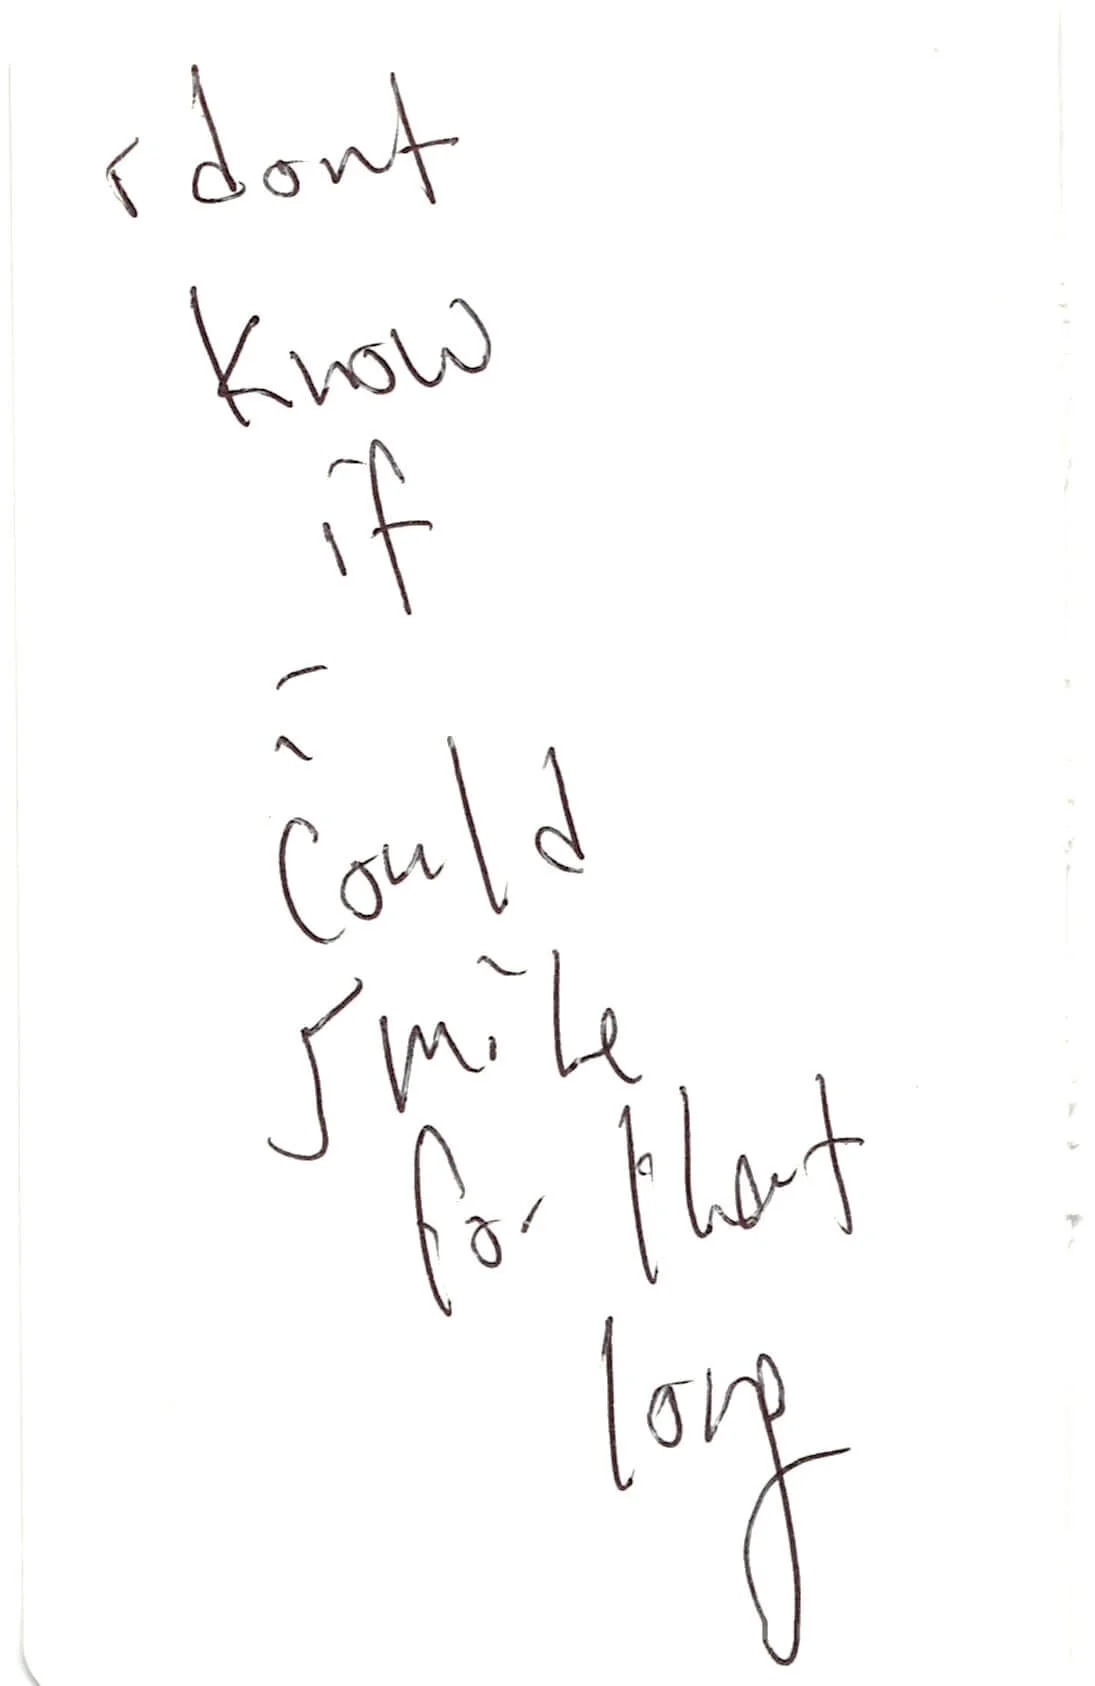 i dont
know
if
i
could
smile
for that
long